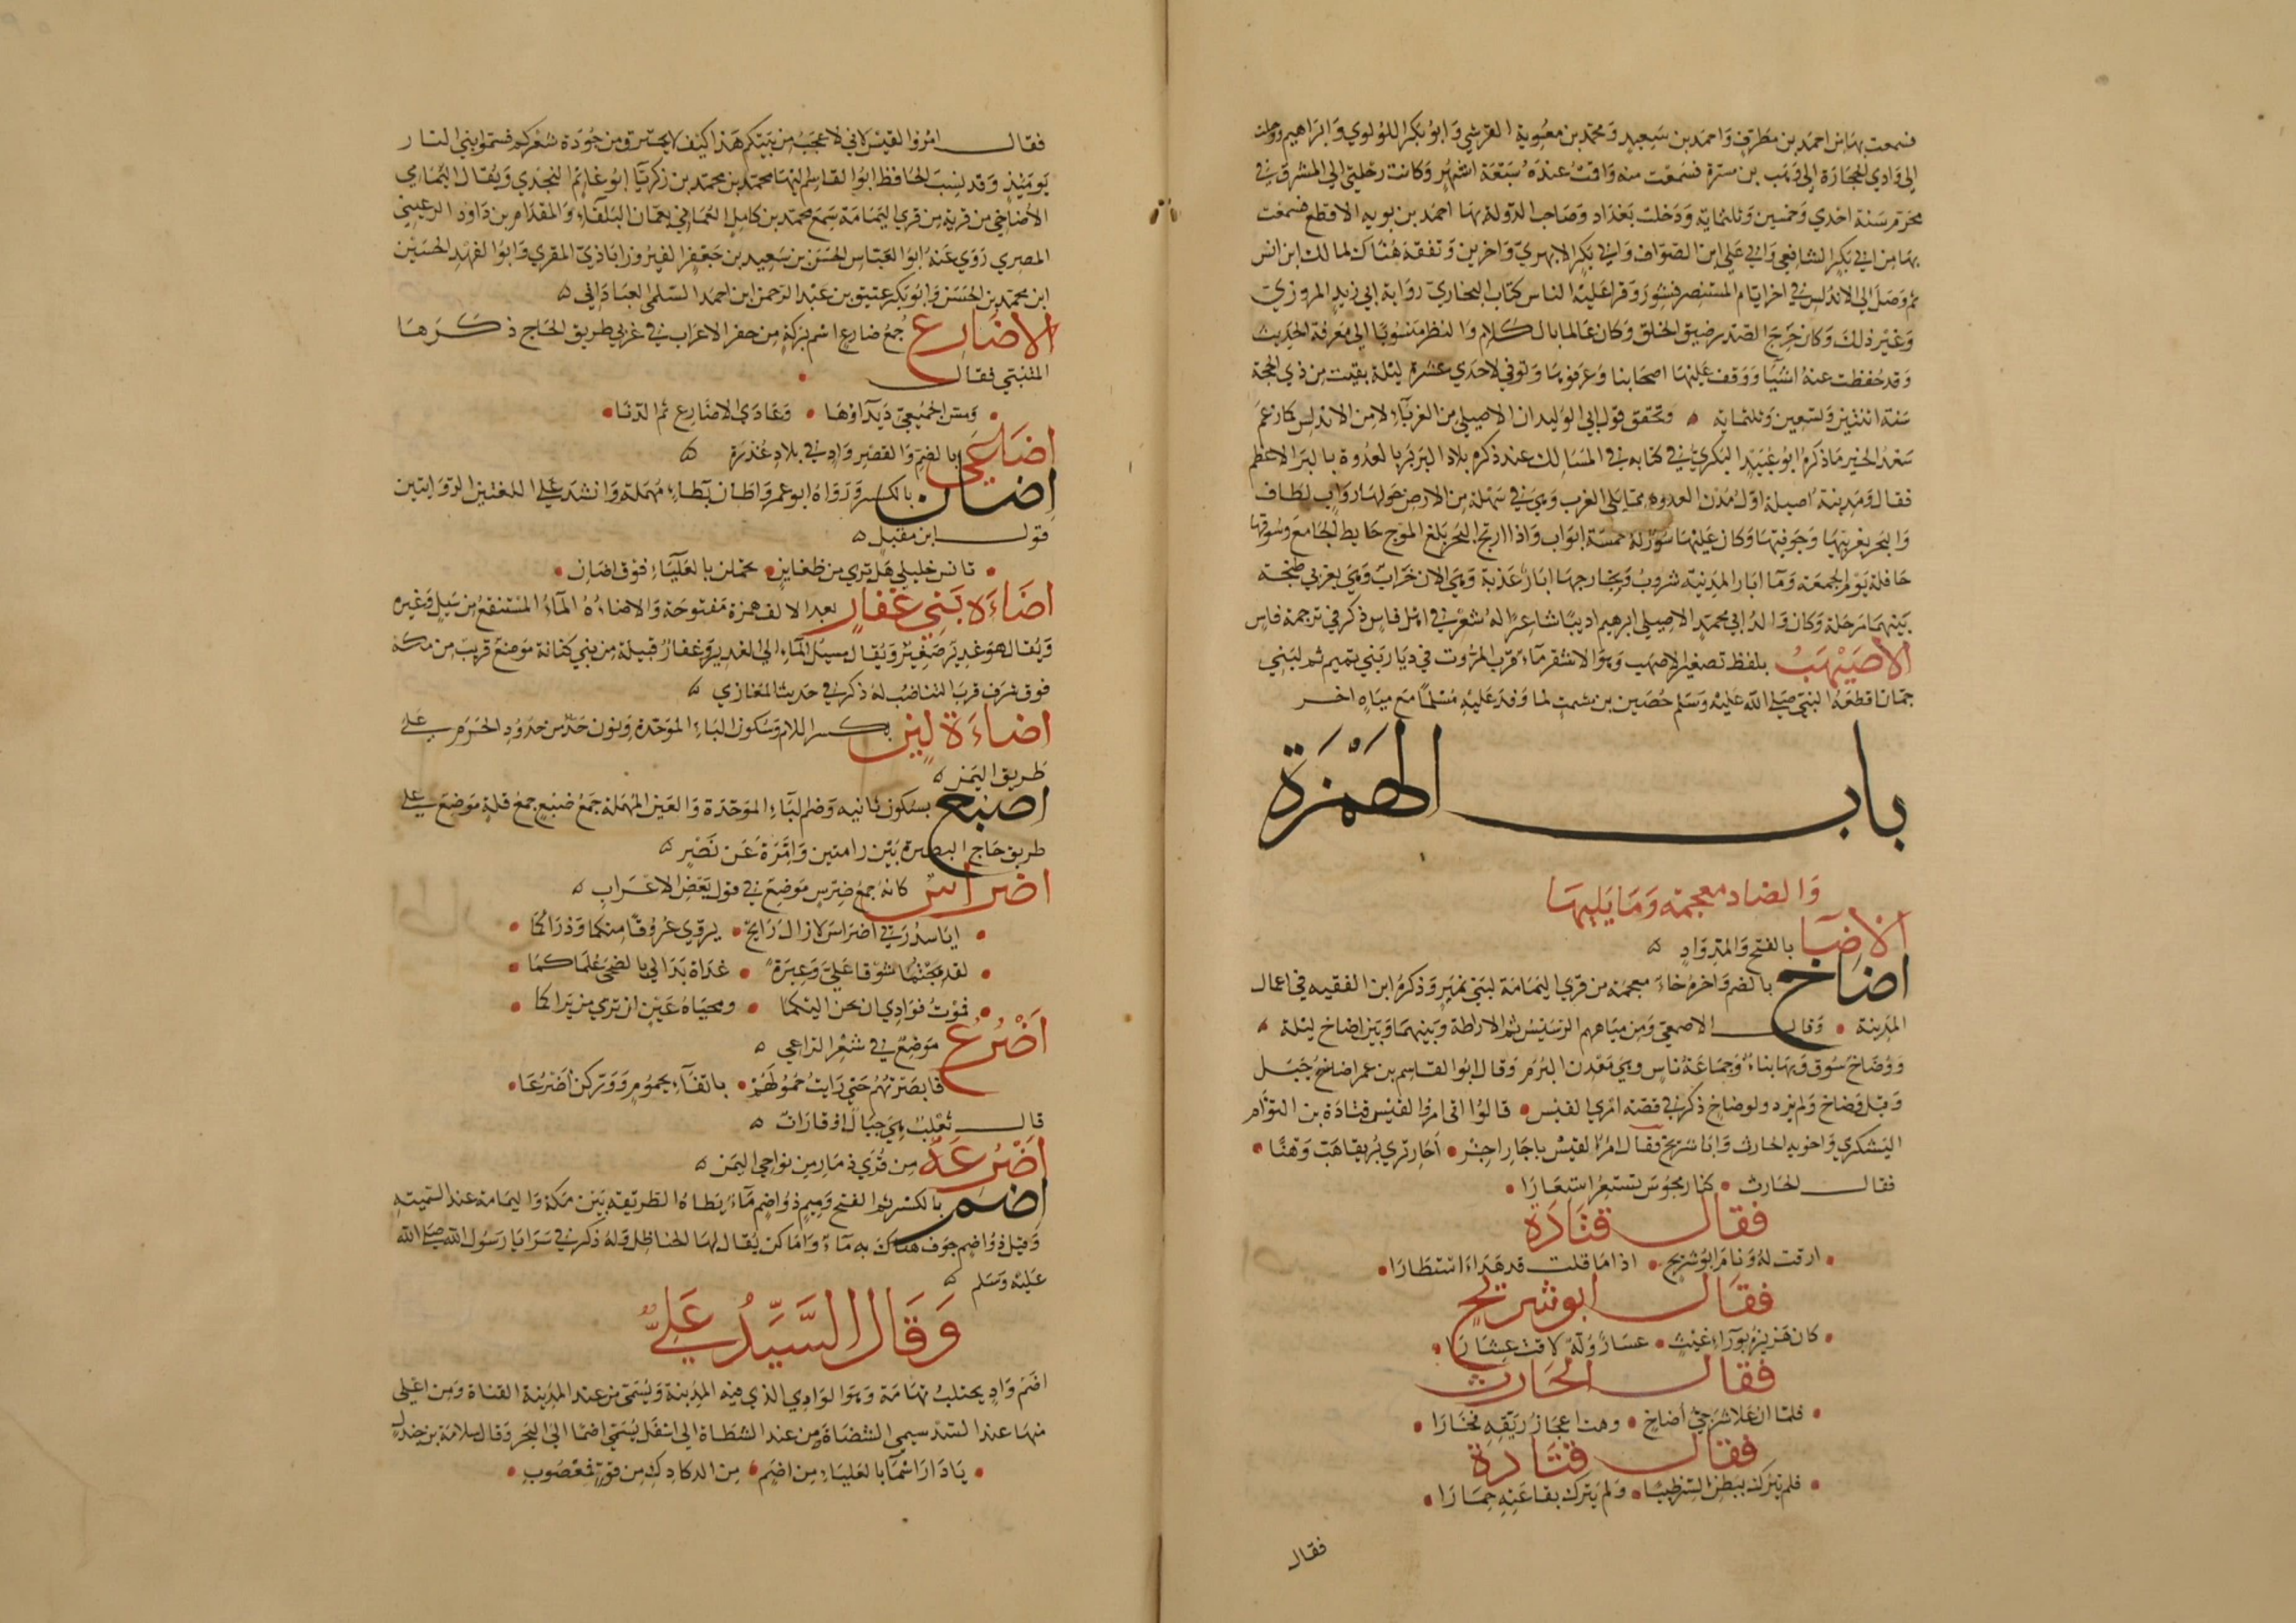 فسمعت بها من احمد بن مطرف واحمد بن سعيد ومحمد بن معوية القرشي وابو بكر اللولوي وابراهيم ورحلت
الى وادي الحجارة الى وهب بن مسرة فسمعت منه واقت عنده سبعة اشهر وكانت رحلتي الى المشرق في
محرم سنة احدي وخمسين وثلثماية ودخلت بغداد وصاحب الدولة بها احمد بن بويه الاقطع فسمعت
بها من ابي بكر الشافعي وابي علي ابن الصواف وابي بكر الابهري واخرين وتفقه هناك لمالك ابن انس
ثم وصل الى الاندلس في اخر ايام المستنصر فشوور وقرا عليه الناس كتاب البخاري رواية ابي زيد المروزي
وغير ذلك وكان حرج الصدر ضيق الخلق وكان عالما بالكلام والنظر منسوبا الى معرفة الحديث
وقد حفظت عنه اشيا ووقف عليها اصحابنا وعرفوها وتوفي لاحدي عشرة ليلة بقيت من ذي الحجة
سنة اثنتين وتسعين وثلثماية وتحقق قول ابي الوليد ان الاصيلي من الغرباء لا من الاندلس كما زعم
سعد الخير ما ذكره ابو عبيد البكري في كتابه في المسالك عند ذكره بلاد البربر بالعدوة بالبر الاعظم
فقال ومدينة اصيلة اول مدن العدوة مما يلي الغرب وهي في سهلة من الارض حولها رواب لطاف
والبحر بغربيها وجوفيها وكان عليها سور له خمسة ابواب واذا ارتج البحر بلغ الموج حايط الجامع وسوقها
حافلة يوم الجمعة وماء ابار المدينة شروب وبخارجها ابار عذبة وهي الان خراب وهي بغربي طنجة
بينهما مرحلة وكان والد ابي محمد الاصيلي ابرهيم اديبا شاعرا له شعر في اهل فاس ذكر في ترجمة فاس
الاصيهب بلفظ تصغير الاصهب وهو الاشقر ماء قرب المروت في ديار بني تميم ثم لبني
حمان اقطعه النبي صلى الله عليه وسلم حصين بن مشمت لما وفد عليه مسلما مع مياه اخر
باب الهمزة
والضاد معجمة وما يليها
الاضا بالفتح والمد واد
اضاخ بالضم واخره خاء معجمة من قري اليمامة لبني نمير وذكره ابن الفقيه في اعمال
المدينة وقال الاصمعي ومن مياههم الرسيس ثم الاراطة وبينهما وبين اضاخ ليلة
ووضاخ سوق وبها بناء وجماعة ناس وهي معدن البرم وقال ابو القاسم بن عمر اضاخ جبل
وقيل وضاخ ولم يزد ولوضاخ ذكر في قصة امري القيس قالوا اتى امرؤ القيس قتادة بن التوام
اليشكري واخويه الحارث وابا شريح فقال امرؤ القيس يا حار اجز احار تري بريقا هب وهنا
فقال الحارث كنار مجوس تستعر استعارا
فقال قتادة
ارقت له ونام ابو شريح اذا ما قلت قد هدا استطارا
فقال ابو شريح
كان هزيزه بوراء غيث عشار وله لاقت عشارا
فقال الحارث
فلما ان علا شرجي اضاخ وهت اعجاز ريقه فحارا
فقال قتادة
فلم يترك ببطن السر ظبيا ولم يترك بقاعته حمارا
فقال
فقال امرؤ القيس لاني لاعجب من بيتكم هذا كيف لا يحترق من جودة شعركم فسموا بني النار
يومئذ وقد نسب الحافظ ابو القاسم اليها محمد بن محمد بن زكريا ابو غانم النجدي ويقال اليمامي
الاضاخي من قرية من قري اليمامة سمع محمد بن كامل العماني بعمان البلقاء والمقدام بن داود الرعيني
المصري روي عنه ابو العباس الحسن بن سعيد بن جعفر الفيروزاباذي المقري وابو الفهد الحسين
ابن محمد بن الحسن وابو بكر عتيق بن عبد الرحمن ابن احمد السلمي العباداني
الاضارع جمع ضارع اسم بركة من حفر الاعراب في غربي طريق الحاج ذكرها
المتنبي فقال
ومسي الجميعي ديداؤها وغادي الاضارع ثم الدنا
اضاعي بالضم والقصر واد في بلاد عذرة
اضان بالكسر ورواه ابو عمر واطان بطاء مهملة وانشد علي اللغتين الروايتين
قول ابن مقبل
تانس خليلي هل تري من ظغاين تحملن بالعلياء فوق اضان
اضاءه بني غفار بعد الالف همزة مفتوحة والاضاءه الماء المستنقع من سيل وغيره
ويقال هو غدير صغير ويقال مسيل الماء الي الغدير وغفار قبيلة من بني كنانة موضع قريب من مكة
فوق سرف قرب التناضب له ذكر في حديث المغازي
اضاءة لبن بكسر اللام وسكون الباء الموحدة ونون حد من حدود الحرم علي
طريق اليمن
اضبع بسكون ثانيه وضم الباء الموحدة والعين المهملة جمع ضبع جمع قلة موضع علي
طريق حاج البصرة بين رامتين وامرة عن نصر
اضراس كانه جمع ضرس موضع في قول بعض الاعراب
ايا سدرتي اضراس لا زال رايحا يروي عروقا منكما وذراكما
لقد هجتما شوقا علي وعبرة غداة بدا لي بالضحى علماكما
فموت فوادي ان نحن اليكما ومحياه عين ان تري من يراكما
اضرع موضع في شعر الراعي
فابصرتهم حتي رايت حمولهم بانقاء يحموم ووركن اضرعا
قال ثعلب هي جبال او قارات
اضرعة من قري ذمار من نواحي اليمن
اضم بالكسر ثم الفتح وميم ذو اضم ماء يطاه الطريقه بين مكة واليمامة عند السمينه
وقيل ذو اضم جوف هناك به ماء واماكن يقال لها الحناظل وله ذكر في سرايا رسول الله صلى الله
عليه وسلم
وقال السيد علي
اضم واد يجتلب تهامة وهو الوادي الذي فيه المدينة ويسمى من عند المدينة القناة ومن اعلى
منها عند السد سيمي الشضاة ومن عند الشظاة الى اسفل يسمى اضما الى البحر وقال سلامة بن جندل
يا دار اسما بالعلياء من اضم من الدكادك من قو فعصوب